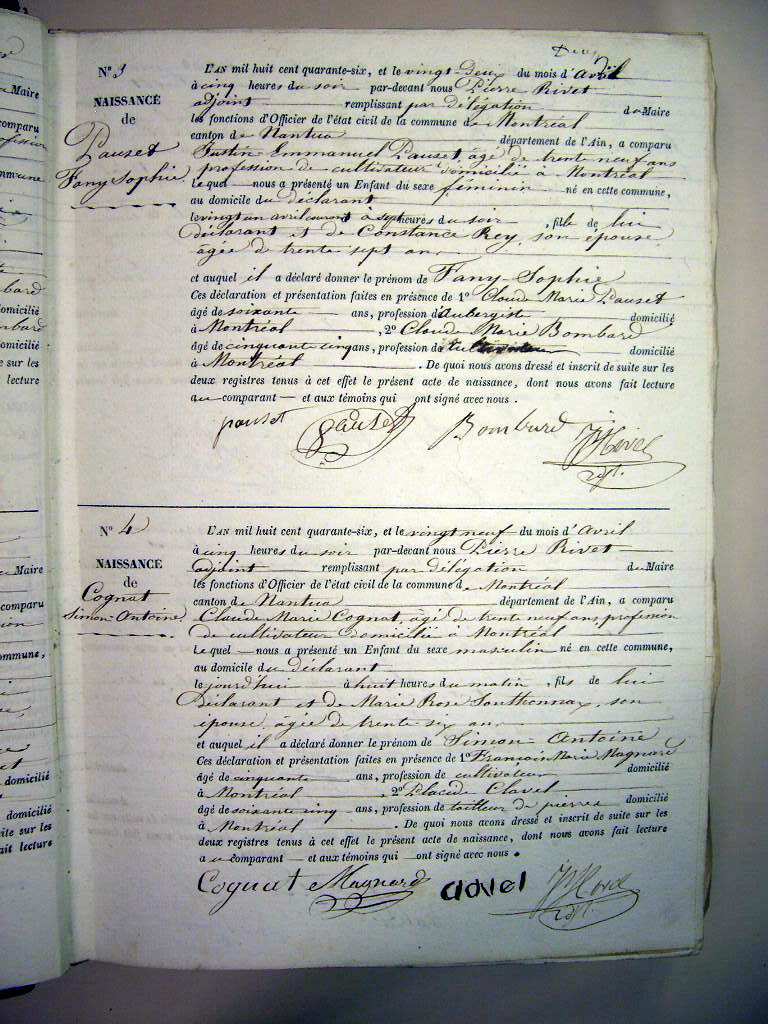 N° 3
NAISSANCE
de
Pauset
Fany Sophie
L'AN mil huit cent quarante-six, et le vingt-Deux du mois d'avril
à cinq heures du soir par-devant nous Pierre Rivet
adjoint remplissant par délégation du Maire
les fonctions d'Officier de l'état civil de la commune de Montréal
canton de Nantua département de l'Ain, a comparu
Justin Emmanuel Pauset, âgé de trente neuf ans
profession de cultivateur domicilié à Montréal
Lequel nous a présenté un Enfant du sexe féminin né en cette commune,
au domicile du déclarant
le vingt un avril courant à sept heures du soir, fille de lui
déclarant et de Constance Rey, son épouse,
âgée de trente sept ans
et auquel il a déclaré donner le prénom de Fany-Sophie
Ces déclaration et présentation faites en présence de 1° Claude Marie Pauset
âgé de soixante ans, profession d'Aubergiste domicilié
à Montréal, 2° Claude Marie Bombard
âgé de cinquante cinq ans, profession de cultivateur domicilié
à Montréal. De quoi nous avons dressé et inscrit de suite sur les
deux registres tenus à cet effet le présent acte de naissance, dont nous avons fait lecture
au comparant et aux témoins qui ont signé avec nous.
pauset Pauset Bombard Rivet
adjt.
N° 4
NAISSANCE
de
Cognat
Simon-Antoine
L'AN mil huit cent quarante-six, et le vingt neuf du mois d'avril
à cinq heures du soir par-devant nous Pierre Rivet
adjoint remplissant par délégation du Maire
les fonctions d'Officier de l'état civil de la commune de Montréal
canton de Nantua département de l'Ain, a comparu
Claude Marie Cognat, âgé de trente neuf ans, profession
de cultivateur domicilié à Montréal
Lequel nous a présenté un Enfant du sexe masculin né en cette commune,
au domicile du déclarant
le jourd'hui à huit heures du matin, fils de lui
Déclarant et de Marie Rose Southonnax, son
épouse, âgée de trente six ans
et auquel il a déclaré donner le prénom de Simon-Antoine
Ces déclaration et présentation faites en présence de 1° François Marie Magnard
âgé de cinquante ans, profession de cultivateur domicilié
à Montréal, 2° Placide Clavel
âgé de soixante cinq ans, profession de tailleur de pierres domicilié
à Montréal. De quoi nous avons dressé et inscrit de suite sur les
deux registres tenus à cet effet le présent acte de naissance, dont nous avons fait lecture
au comparant et aux témoins qui ont signé avec nous.
Cognat Magnard clavel Rivet
adjt.